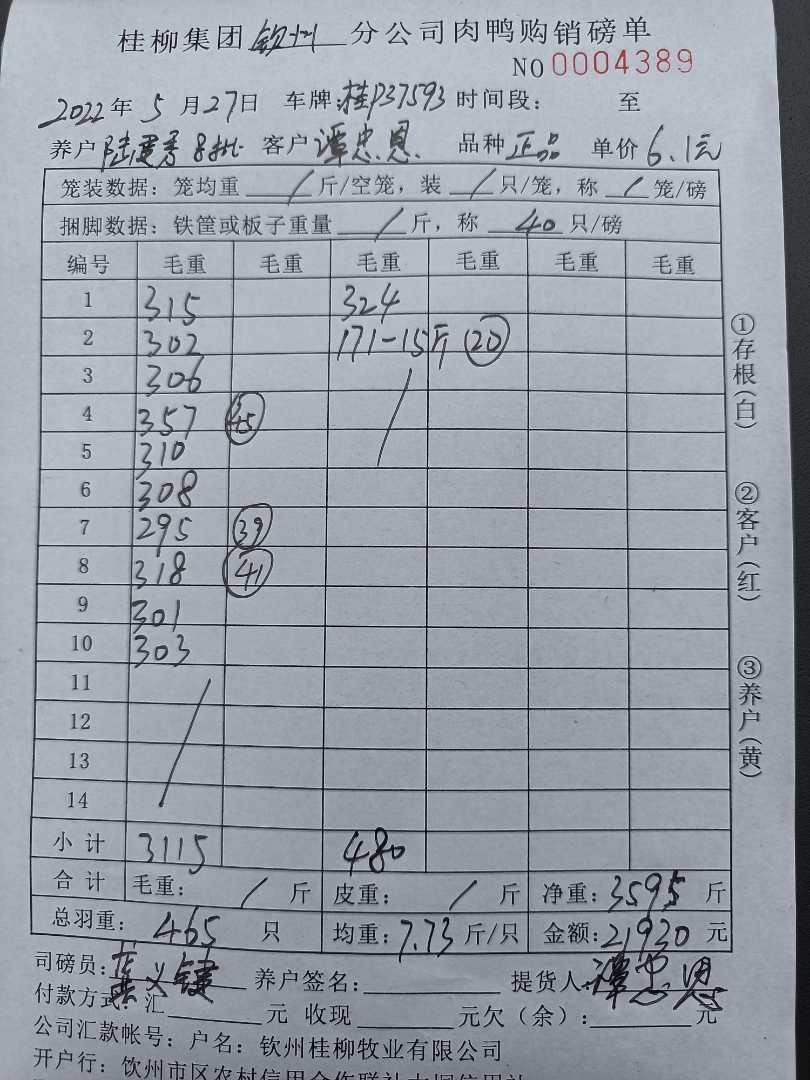 桂柳集团 钦州 分公司肉鸭购销磅单
NO 0004389
2022年 5 月27日 车牌:桂P37593 时间段: 至
养户 陆 秀 8批 客户 谭忠恩. 品种 正品 单价 6.1元
笼装数据: 笼均重 / 斤/空笼, 装 / 只/笼, 称 / 笼/磅
捆脚数据: 铁筐或板子重量 / 斤, 称 40 只/磅
编号 毛重 毛重 毛重 毛重 毛重 毛重
1 315 324
2 302 171-15斤 (20)
3 306 /
4 357 (45)
5 310
6 308
7 295 (39)
8 318 (41)
9 301
10 303
11 /
12
13
14
小计 3115 480
合计 毛重: / 斤 皮重: / 斤 净重: 3595 斤
总羽重: 465 只 均重: 7.73 斤/只 金额: 21930 元
司磅员: 黄义键 养户签名: 提货人: 谭忠恩
付款方式: 汇 元 收现 元欠(余): 元
公司汇款帐号: 户名: 钦州桂柳牧业有限公司
开户行: 钦州市区农村信用合作联社大垌信用社
①存根(白)
②客户(红)
③养户(黄)